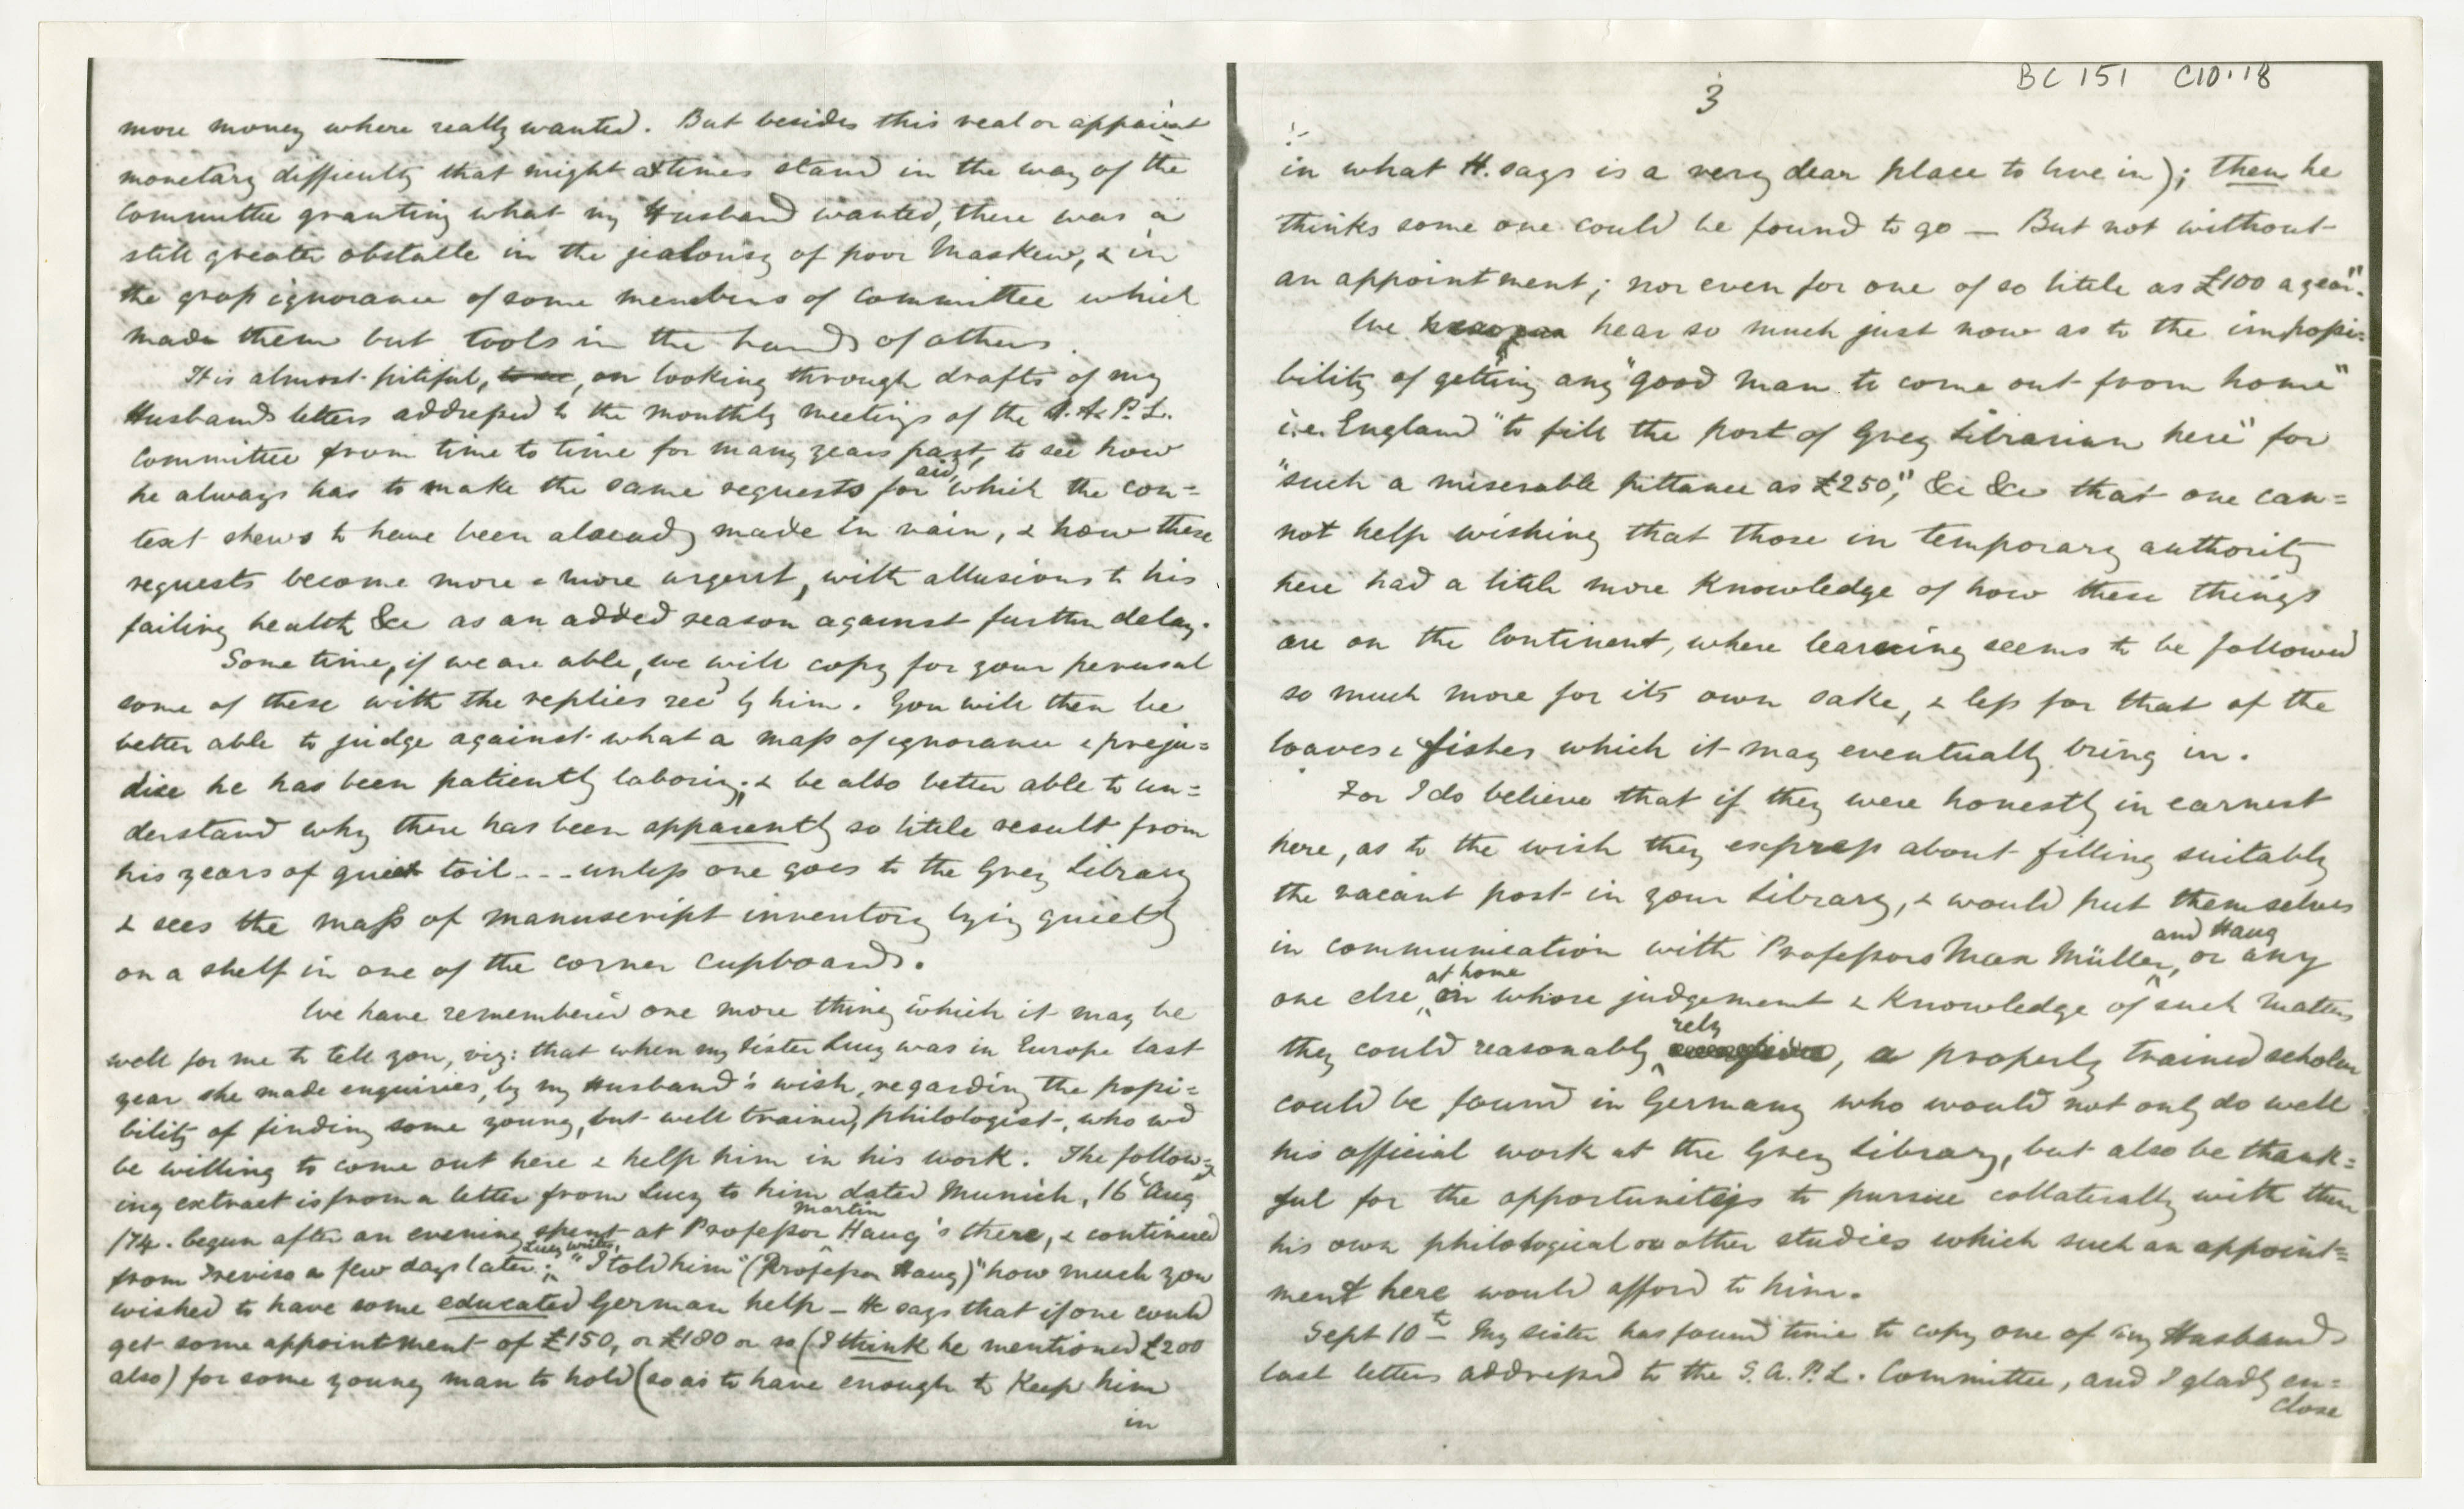 more money where really wanted. But besides this real or apparent
monetary difficulty that might at times stand in the way of the
Committee granting what my Husband wanted, there was a
still greater obstacle in the jealousy of poor Maskew, & in
the gross ignorance of some members of Committee which
made them but tools in the hands of others.
It is almost pitiful, to see, on looking through drafts of my
Husbands letters addressed to the monthly meetings of the S. A. P. L.
Committee from time to time for many years past, to see how
he always has to make the same requests for aid, which the con=
text shews to have been already made in vain, & how these
requests become more & more urgent, with allusions to his
failing health &c as an added reason against further delay.
Some time, if we are able, we will copy for your perusal
some of these with the replies recd by him. You will then be
better able to judge against what a mass of ignorance & preju=
dice he has been patiently laboring; & be also better able to un=
derstand why there has been apparently so little result from
his years of quiet toil - - - unless one goes to the Grey Library
& sees the mass of manuscript inventory lying quietly
on a shelf in one of the corner cupboards.
We have remembered one more thing which it may be
well for me to tell you, viz: that when my Sister Lucy was in Europe last
year she made enquiries, by my Husband's wish, regarding the possi=
bility of finding some young, but well trained, philologist, who wd
be willing to come out here & help him in his work. The follow=
ing extract is from a letter from Lucy to him dated Munich, 16 Aug
/74. begun after an evening spent at Professor Martin Haug's there, & continued
from Treviso a few days later; Lucy writes, "I told him" (Professor Haug) "how much you
wished to have some educated German help – He says that if one could
get some appointment of £150, or £180 or so (I think he mentioned £200
also) for some young man to hold (so as to have enough to keep him
in
BC 151 C10.18
3
in what H. says is a very dear place to live in); then he
thinks some one could be found to go – But not without
an appointment; nor even for one of so little as £100 a year".
We hear so much just now as to the impossi=
bility of getting any "good man to come out from home"
i.e. England "to fill the post of Grey Librarian here" for
"such a miserable pittance as £250," &c &c that one can=
not help wishing that those in temporary authority
here had a little more knowledge of how these things
are on the Continent, where learning seems to be followed
so much more for its own sake, & less for that of the
loaves & fishes which it may eventually bring in.
For I do believe that if they were honestly in earnest
here, as to the wish they express about filling suitably
the vacant post in your Library, & would put themselves
in communication with Professors Max Müller and Haug, or any
one else at home in whose judgement & knowledge of such matters
they could reasonably rely, a properly trained scholar
could be found in Germany who would not only do well
his official work at the Grey Library, but also be thank=
ful for the opportunities to pursue collaterally with them
his own philological or other studies which such an appoint=
ment here would afford to him.
Sept 10th My sister has found time to copy one of my Husbands
last letters addressed to the S. A. P. L. Committee, and I gladly en=
close